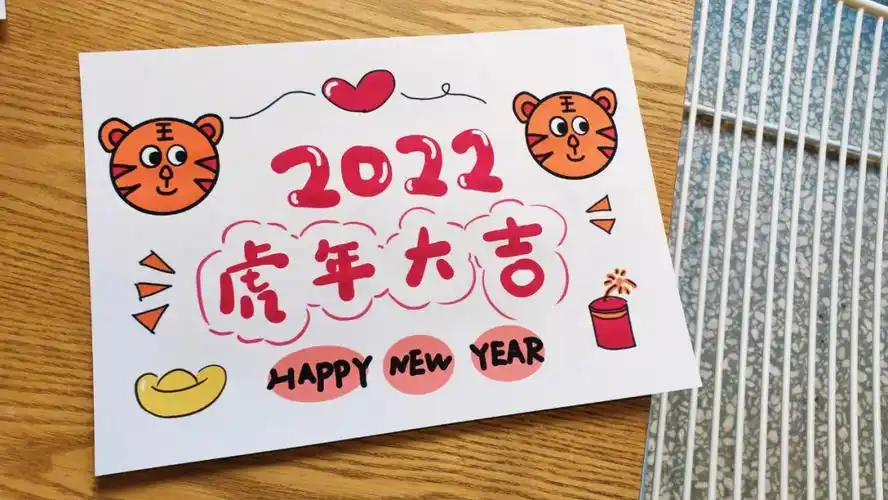 王 王
2022
虎年大吉
HAPPY NEW YEAR